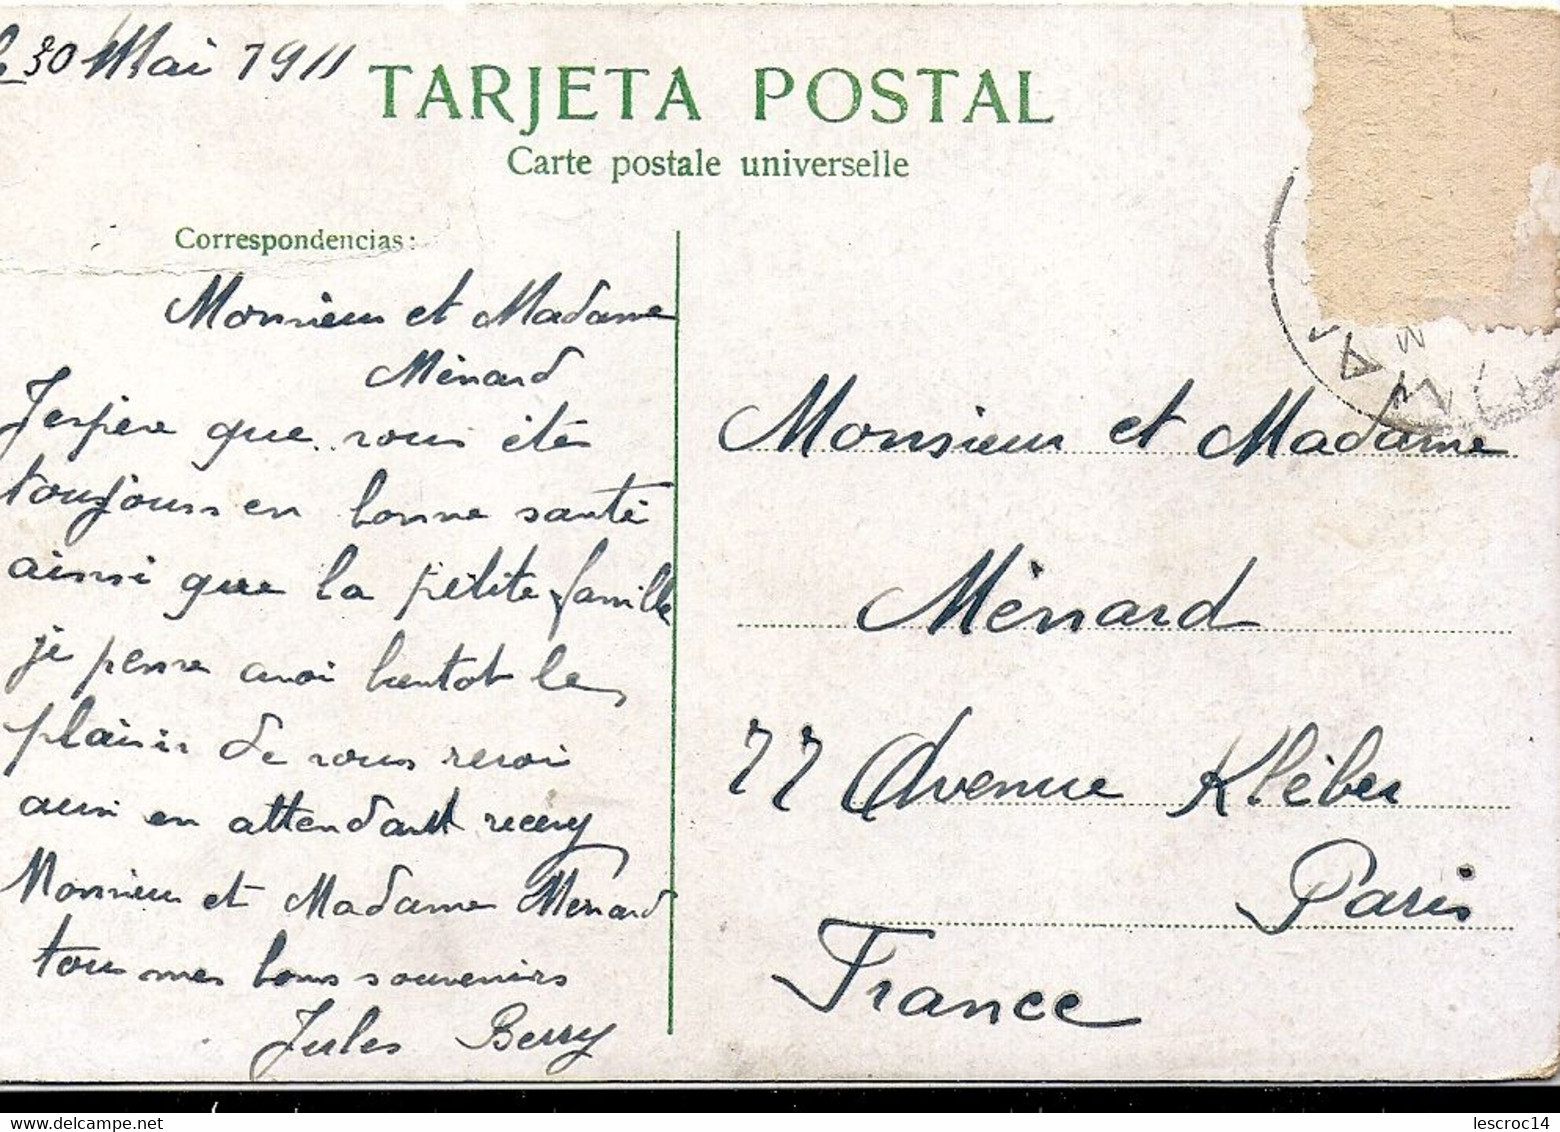 le 30 Mai 1911
TARJETA POSTAL
Carte postale universelle
Correspondencias:
Monsieur et Madame
Ménard
Jespère que vous étés
toujours en bonne santé
ainsi que la pétite famille
je pense avoi bientot le
plaisir de vous revoi
aussi en attendant recevy
Monsieur et Madame Menard
tous mes bons souvenirs
Jules Berry
Monsieur et Madame
Ménard
77 Avenue Kléber
Paris
France
lescroc14